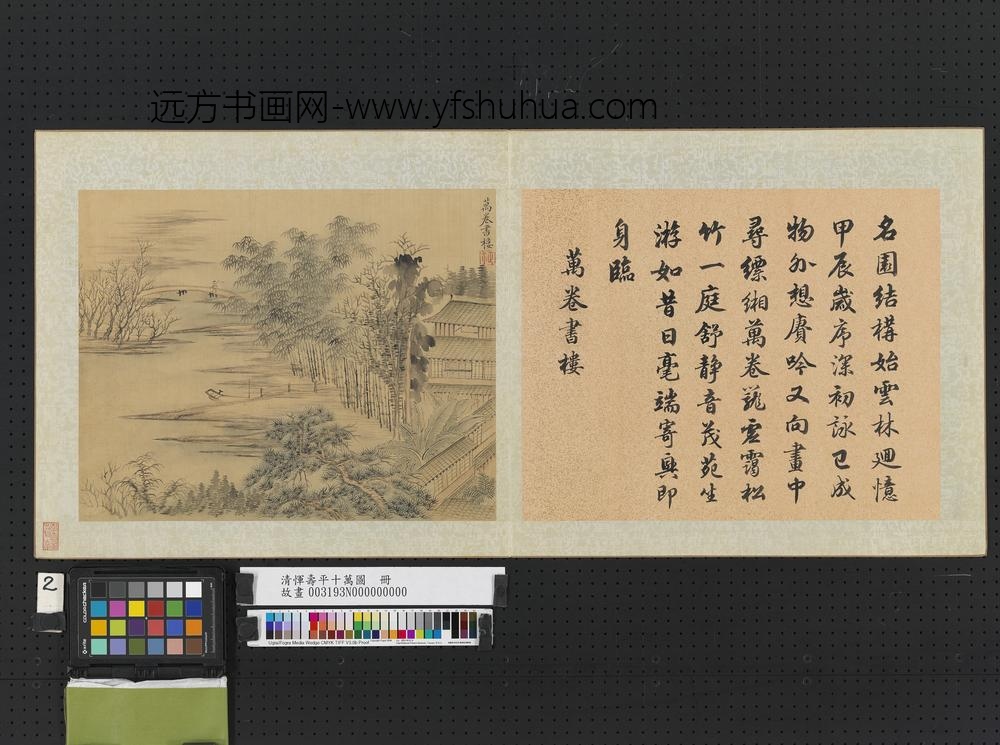 远方书画网-www.yfshuhua.com
萬卷書樓
名園結構始雲林迴憶
甲辰歲序深初詠已成
物外想賡吟又向畫中
尋縹緗萬卷羅雲霄松
竹一庭舒静音茂苑坐
游如昔日毫端寄興即
身臨
萬卷書樓
2
清惲壽平十萬圖 冊
故畫 003193N000000000
Ugra/Fogra Media Wedge CMYK TIFF V3.0b Proof